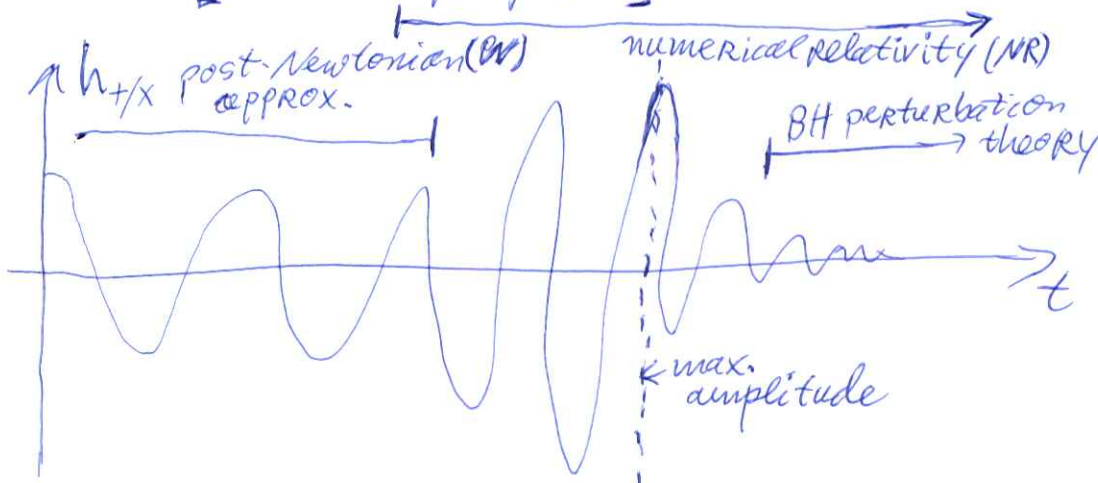 numerical relativity (NR)
h+/x post-Newtonian (PN)
approx.
BH perturbation
theory
t
max.
amplitude